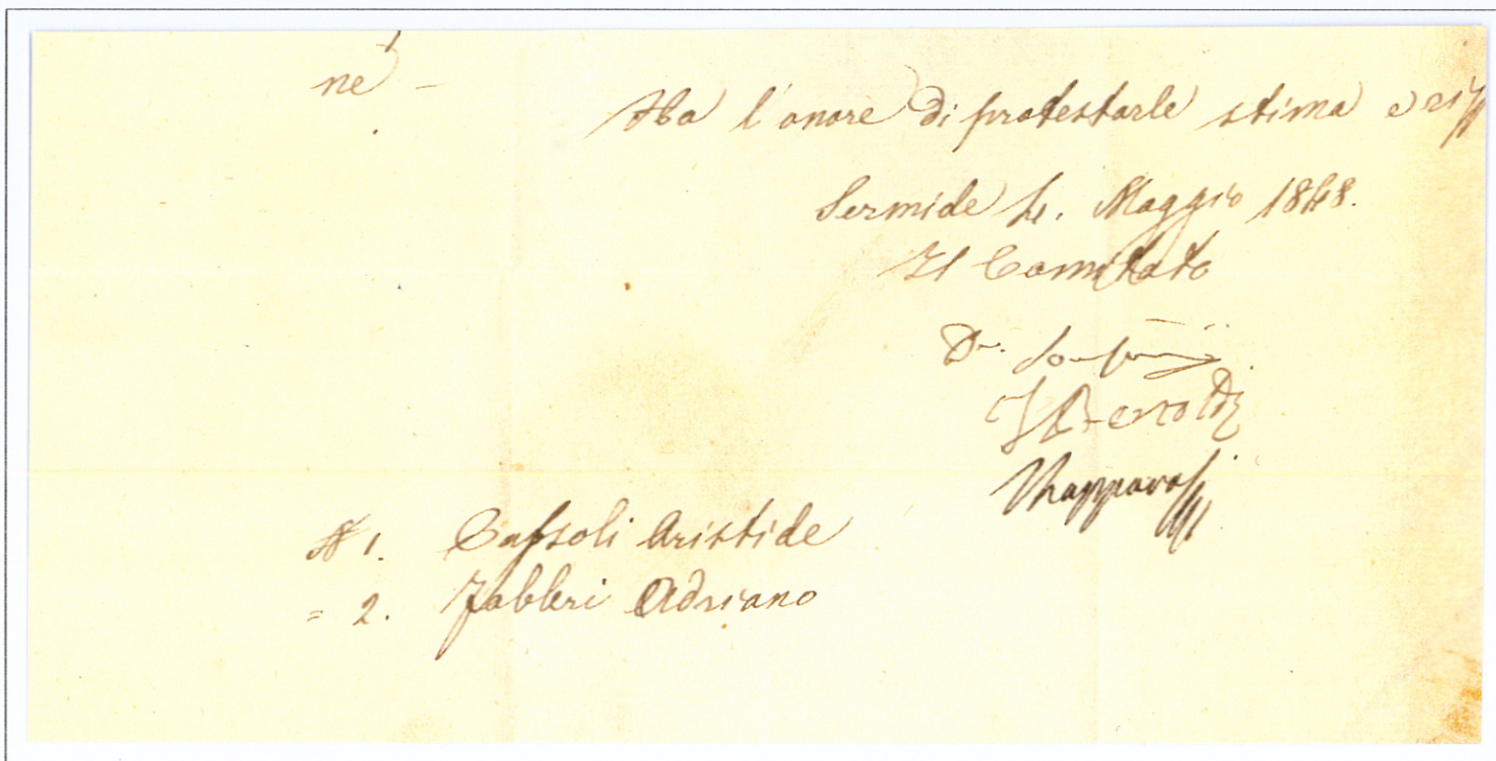 ne -
Ha l'onore di protestarle stima e
Sermide 4. Maggio 1848.
Il Comitato
Dr.
Bertoldi
N 1. Cassoli Aristide
= 2. Fabbri Adriano